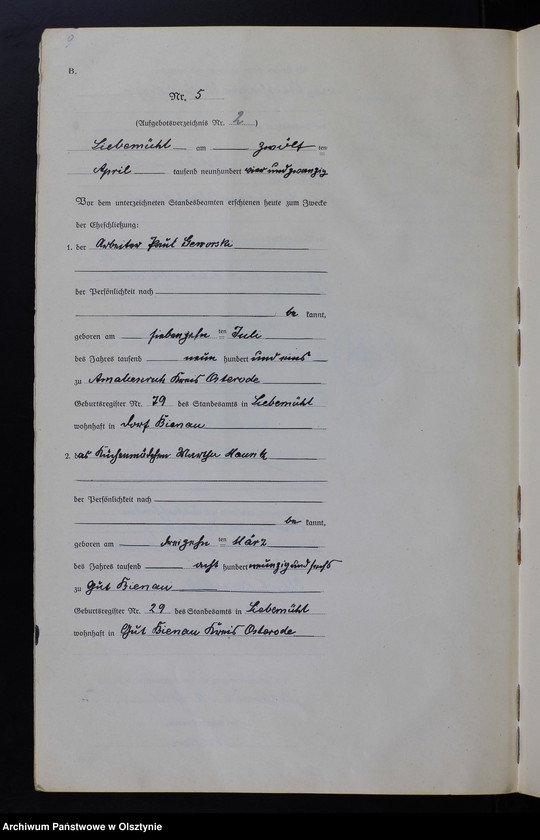 9
B.
Nr. 5
(Aufgebotsverzeichnis Nr. 2)
Liebemühl am zwölf ten
April tausend neunhundert vier und zwanzig
Vor dem unterzeichneten Standesbeamten erschienen heute zum Zwecke
der Eheschließung:
1. der Arbeiter Paul
der Persönlichkeit nach
be kannt,
geboren am siebenzehn ten Juli
des Jahres tausend neun hundert und eins
zu Amalienruh Kreis Osterode
Geburtsregister Nr. 79 des Standesamts in Liebemühl
wohnhaft in Dorf Bienau
2. das Küchenmädchen Martha
der Persönlichkeit nach
be kannt,
geboren am dreizehn ten März
des Jahres tausend acht hundert neunzig und sechs
zu Gut Bienau
Geburtsregister Nr. 29 des Standesamts in Liebemühl
wohnhaft in Gut Bienau Kreis Osterode
Archiwum Państwowe w Olsztynie